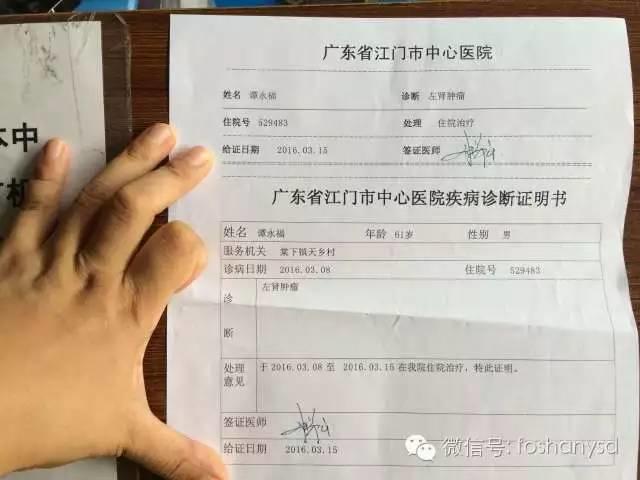 本中
机
广东省江门市中心医院
姓名 谭永福 诊断 左肾肿瘤
住院号 529483 处理 住院治疗
给证日期 2016.03.15 签证医师
广东省江门市中心医院疾病诊断证明书
姓名 谭永福 年龄 61岁 性别 男
服务机关 棠下镇天乡村
诊病日期 2016.03.08 住院号 529483
诊断 左肾肿瘤
处理意见 于2016.03.08 至 2016.03.15 在我院住院治疗，特此证明。
签证医师
给证日期 2016.03.15
微信号: foshanysd